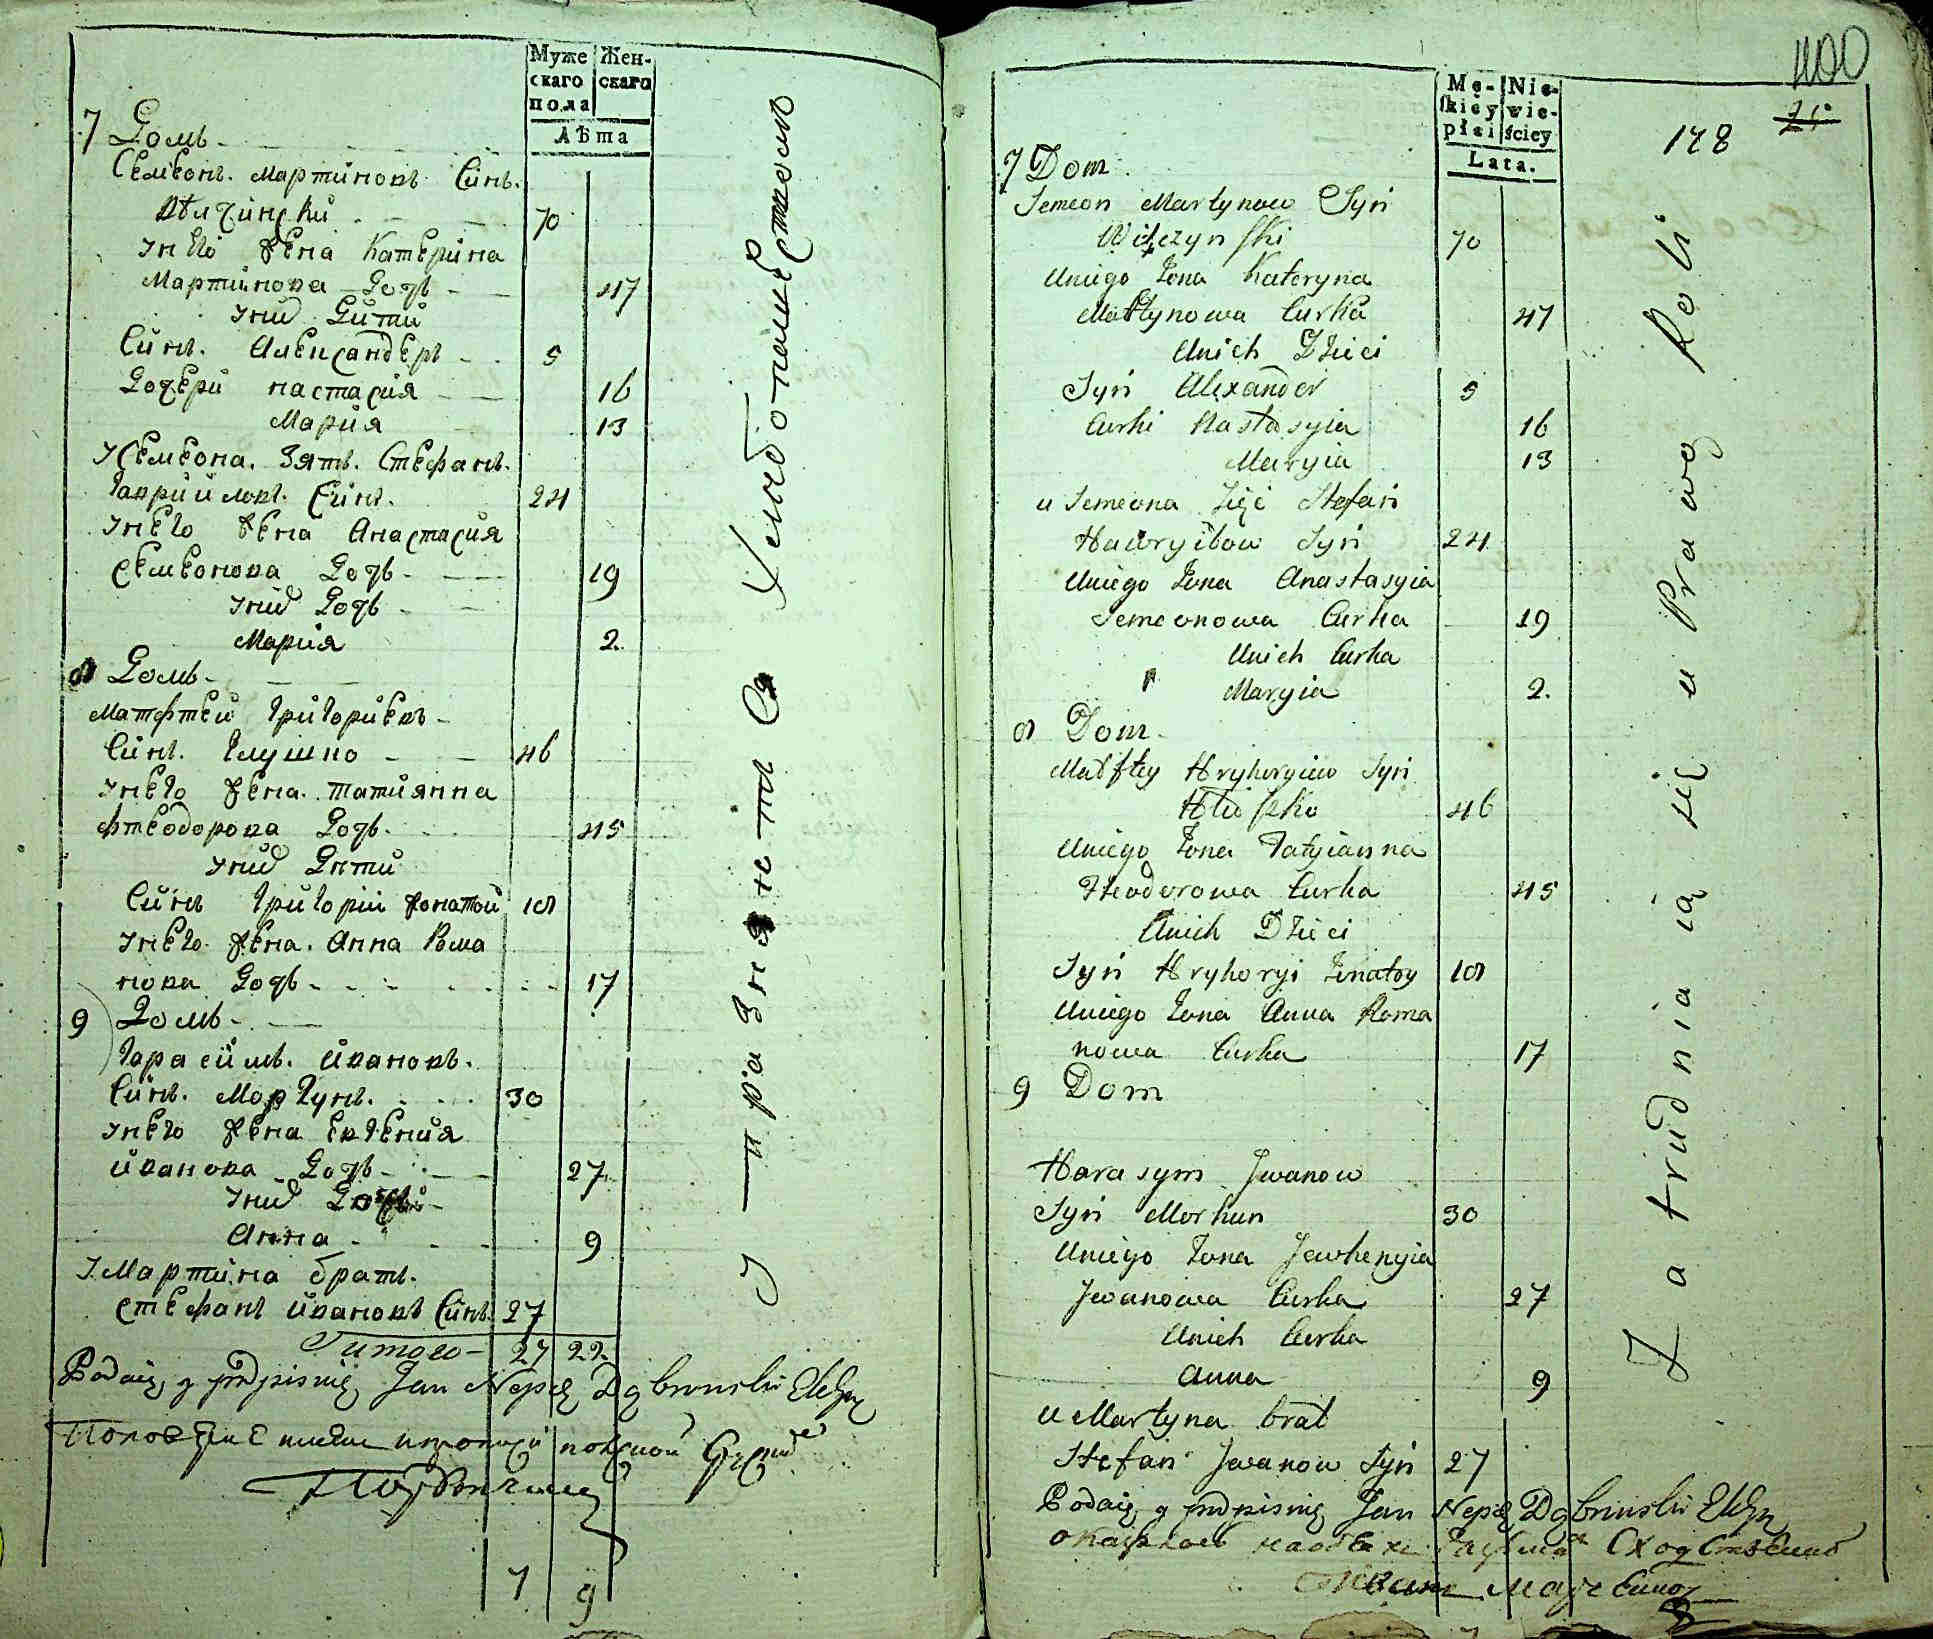 Муже
скаго
пола
Жен-
скаго
Лѣта
7 Домъ
Семеонъ. Мартиновъ Синъ.
Вѣлчински 70
Унего Жена Катерина
Мартинова Дочь 47
Унид Дити
Синъ. Александеръ 5
Дочери настасия 16
Мария 13
УСемеона. Зять. Стефанъ.
Гаврииловъ. Синъ. 24
Унего Жена Анастасия
Семеонова Дочь 19
Унид Дочь
Мария 2.
8 Домъ
Матфтей Григориевъ
Синъ. Глушко 46
Унего Жена. татиянна
фтеодорова Дочь. 45
Унид Дити
Синъ Григорий Жонатой 18
Унего. Жена. Анна Рома
нова Дочь 17
9 Домъ
Гарасимъ. Ивановъ.
Синъ. Моргунъ. 30
Унего Жена Евгения
Иванова Дочь 27
Унид
Анна 9
УМартина братъ.
стефанъ Ивановъ Синъ. 27
27 22
Podaię y podpisuię Jan Nepo
7 9
400
25
178
Mę-
skiéy
płci
Nie-
wie-
ściey
Lata.
7 Dom
Semeon Martynow Syn
Wilczynski 70
Uniego Żona Kateryna
Martynowa Curka 47
Unich Dzieci
Syn Alexander 5
Curki Nastasyia 16
Maryia 13
u Semeona Zięć Stefan
Hawryiłow Syn 24
Uniego Żona Anastasyia
Semeonowa Curka 19
Unich Curka
Maryia 2.
8 Dom
Matftey Hryhoryiew Syn
Hłuszko 46
Uniego Żona Tatyianna
Fteodorowa Curka 45
Unich Dzieci
Syn Hryhoryi Żonatoy 18
Uniego Żona Anna Roma
nowa Curka 17
9 Dom
Harasym Jwanow
Syn Morhun 30
Uniego Żona Jewhenyia
Jwanowa Curka 27
Unich Curka
Anna 9
u Martyna brat
Stefan Jwanow Syn 27
Zatrudniaią się u Prawo Roli
Podaię y podpisuię Jan Nepo